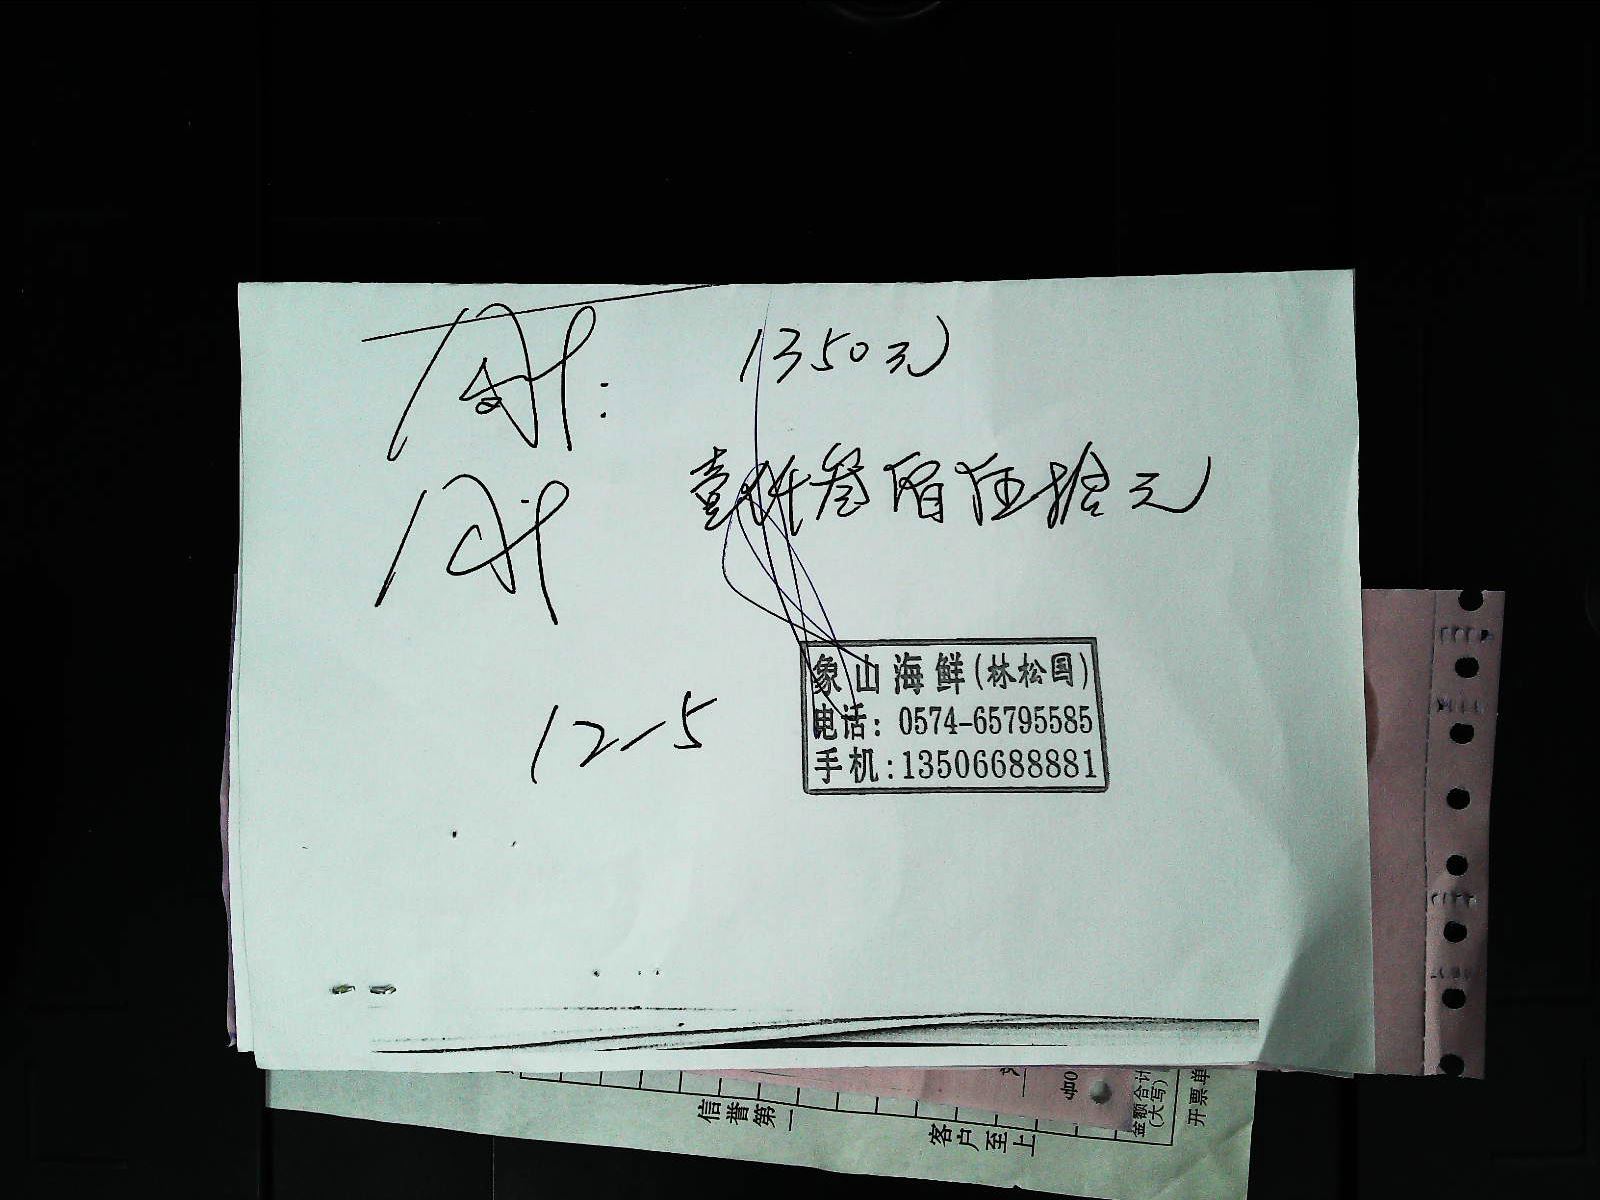 1350元
壹仟叁佰伍拾元
12-5
象山海鲜(林松国)
电话: 0574-65795585
手机:13506688881
信誉第一
客户至上
金额合计
(大写)
开票单